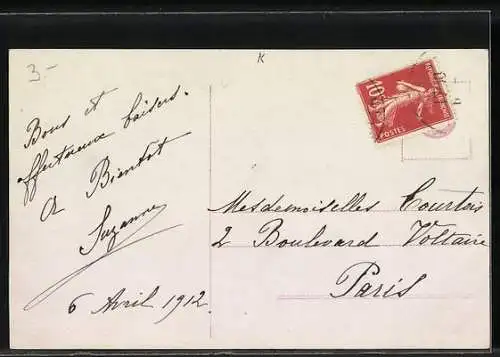 3-
Bons et
affectueux baisers.
A Bientot
Suzanne
6 Avril 1912
10c
POSTES
Mesdemoiselles Courtois
2 Boulevard Voltaire
Paris